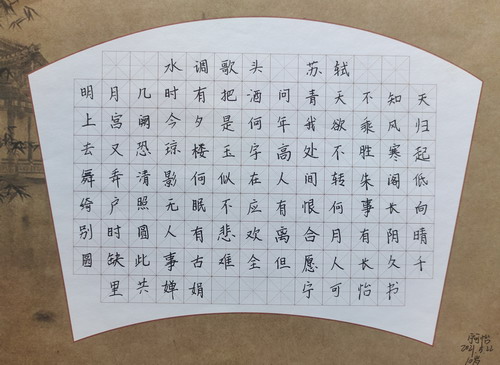 水调歌头 苏轼
明月几时有把酒问青天不知天
上宫阙今夕是何年我欲乘风归
去又恐琼楼玉宇高处不胜寒起
舞弄清影何似在人间转朱阁低
绮户照无眠不应有恨何事长向
别时圆人有悲欢离合月有阴晴
圆缺此事古难全但愿人长久千
里共婵娟 宁可怡书
宁可怡
2021
10岁